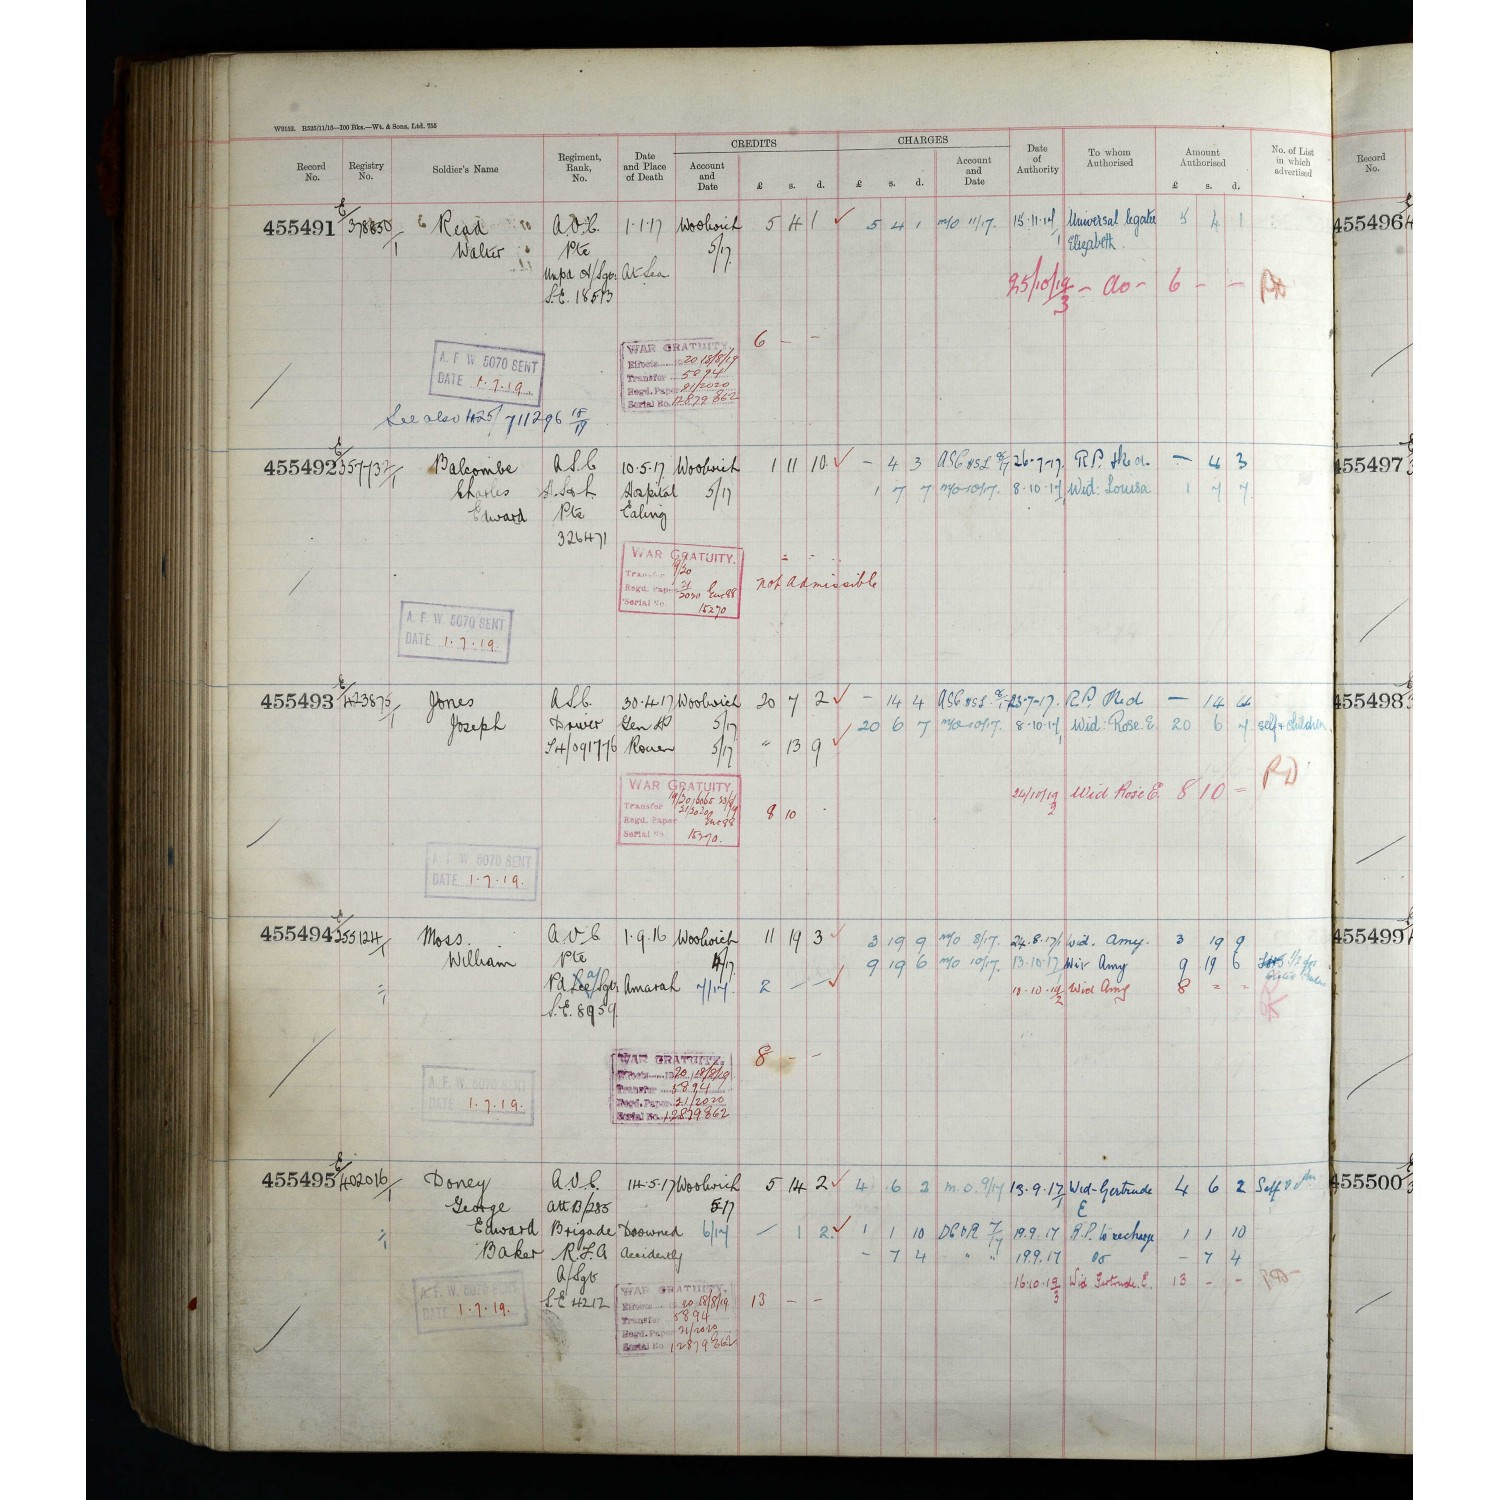 W9152. R525/11/15—100 Bks.—Wt. & Sons, Ltd. 755
CREDITS CHARGES
Record No. Registry No. Soldier's Name Regiment, Rank, No. Date and Place of Death Account and Date £ s. d. £ s. d. Account and Date Date of Authority To whom Authorised Amount Authorised £ s. d. No. of List in which advertised Record No.
455491 E/378850/1 Read A.V.C. 1.1.17 Woolwich 5 4 1 5 4 1 m/o 11/17. 15.11.17/1 Universal legatee 5 4 1 455496
Walter Pte 5/17. Elizabeth.
Unpd A/Sgt. At Sea
S.E. 18573 25/10/19/3 - do - 6 - -
WAR GRATUITY. 6 - -
A. F. W. 5070 SENT Effects 20 18/8/19
DATE 1.7.19. Transfer 5894
Regd. Paper 21/2020
Serial No. 12879862
See also 1425/711296 15/19
455492 E/357732/1 Balcombe A.S.C 10.5.17 Woolwich 1 11 10 - 4 3 26.7.17. R.P. Hd. - 4 3 455497
Charles Hospital 5/17 1 7 7 m/o 10/17. 8.10.17/1 Wid: Louisa 1 7 7
Edward Pte Ealing
326471
WAR GRATUITY. - - -
Transfer 19/20 not admissible
Regd. Paper 21/2020 Enc 88
Serial No. 15270
A. F. W. 5070 SENT
DATE 1.7.19.
455493 E/423875/1 Jones A.S.C. 30.4.17 Woolwich 20 7 2 - 14 4 23.7.17. R.P. Hd - 14 4 455498
Joseph Driver Gen H 5/17 20 6 7 m/o 10/17. 8.10.17/1 Wid: Rose. E. 20 6 7 self & children
T4/091776 Rouen 5/17 " 13 9
WAR GRATUITY. 24/10/19/2 Wid Rose E. 8 10 - RD
Transfer 8 10
Regd. Paper 21/2020 Enc 88
Serial No. 15270.
A. F. W. 5070 SENT
DATE 1.7.19.
455494 E/255124/1 Moss. A.V.C 1.9.16 Woolwich 11 19 3 3 19 9 m/o 8/17. 24.8.17/1 Wid. Amy. 3 19 9 455499
William Pte 4/17. 9 19 6 m/o 10/17. 13.10.17 Wid Amy 9 19 6
Pd a/Sgt Amarah 7/17. 2 - - 18.10.19/2 Wid Amy 8 - -
S.E. 8959.
WAR GRATUITY. 8 - -
Effects 20 18/8/19
A. F. W. 5070 SENT Transfer 5894
DATE 1.7.19. Regd. Paper 21/2020
Serial No. 12879862
455495 E/402016/1 Doney A.V.C. 14.5.17 Woolwich 5 14 2 4 6 2 m.o. 9/17 13.9.17/1 Wid-Gertrude 4 6 2 455500
George att B/285 5.17 E
Edward Brigade Drowned 6/17 - 1 2 1 1 10 7/17 19.9.17 R.P. to recharge 1 1 10
Baker R.F.A Accidently - 7 4 " " 19.9.17 do - 7 4
A/Sgt 16.10.19/3 Wid Gertrude. E. 13 - -
S.E 4212
WAR GRATUITY. 13 - -
A. F. W. 5070 SENT Effects 20 18/8/19
DATE 1.7.19. Transfer 5894
Regd. Paper 21/2020
Serial No 12879862